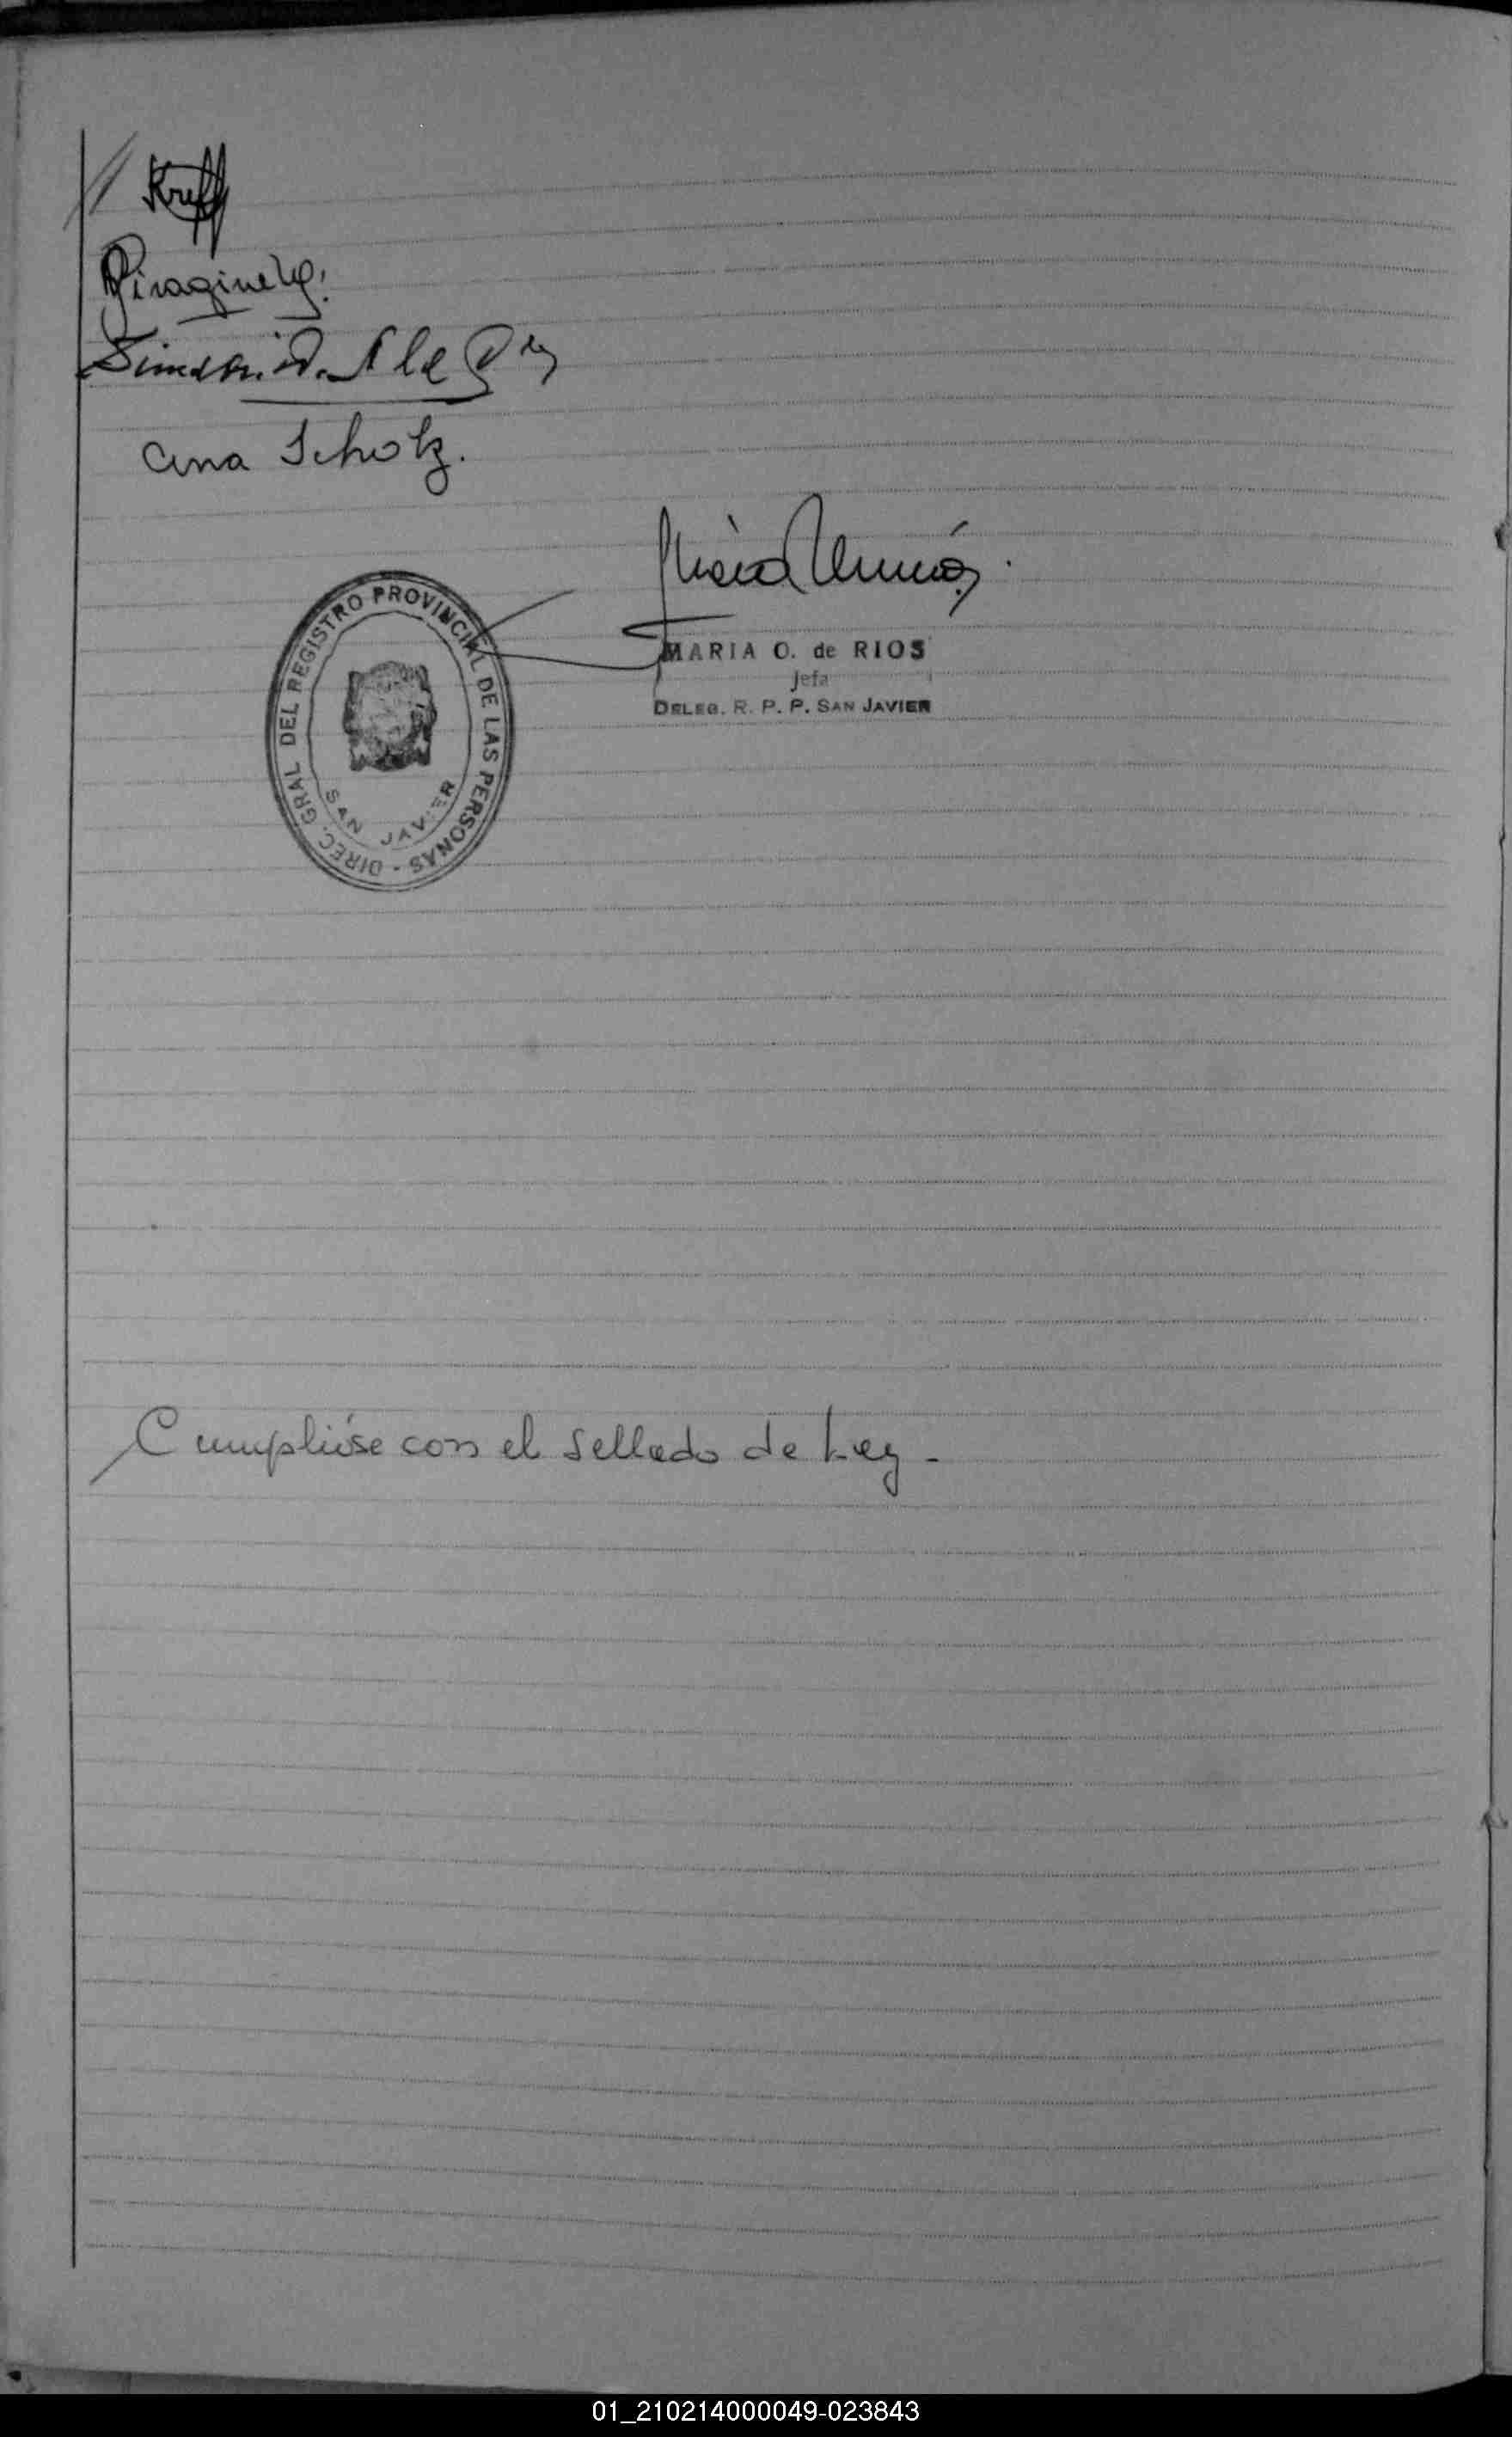 Kreff
Ana Scholz.
DIREC. GRAL DEL REGISTRO PROVINCIAL DE LAS PERSONAS -
SAN JAVIER
MARIA O. de RIOS
Jefa
DELEG. R. P. P. SAN JAVIER
Cumplióse con el sellado de Ley -
01_210214000049-023843